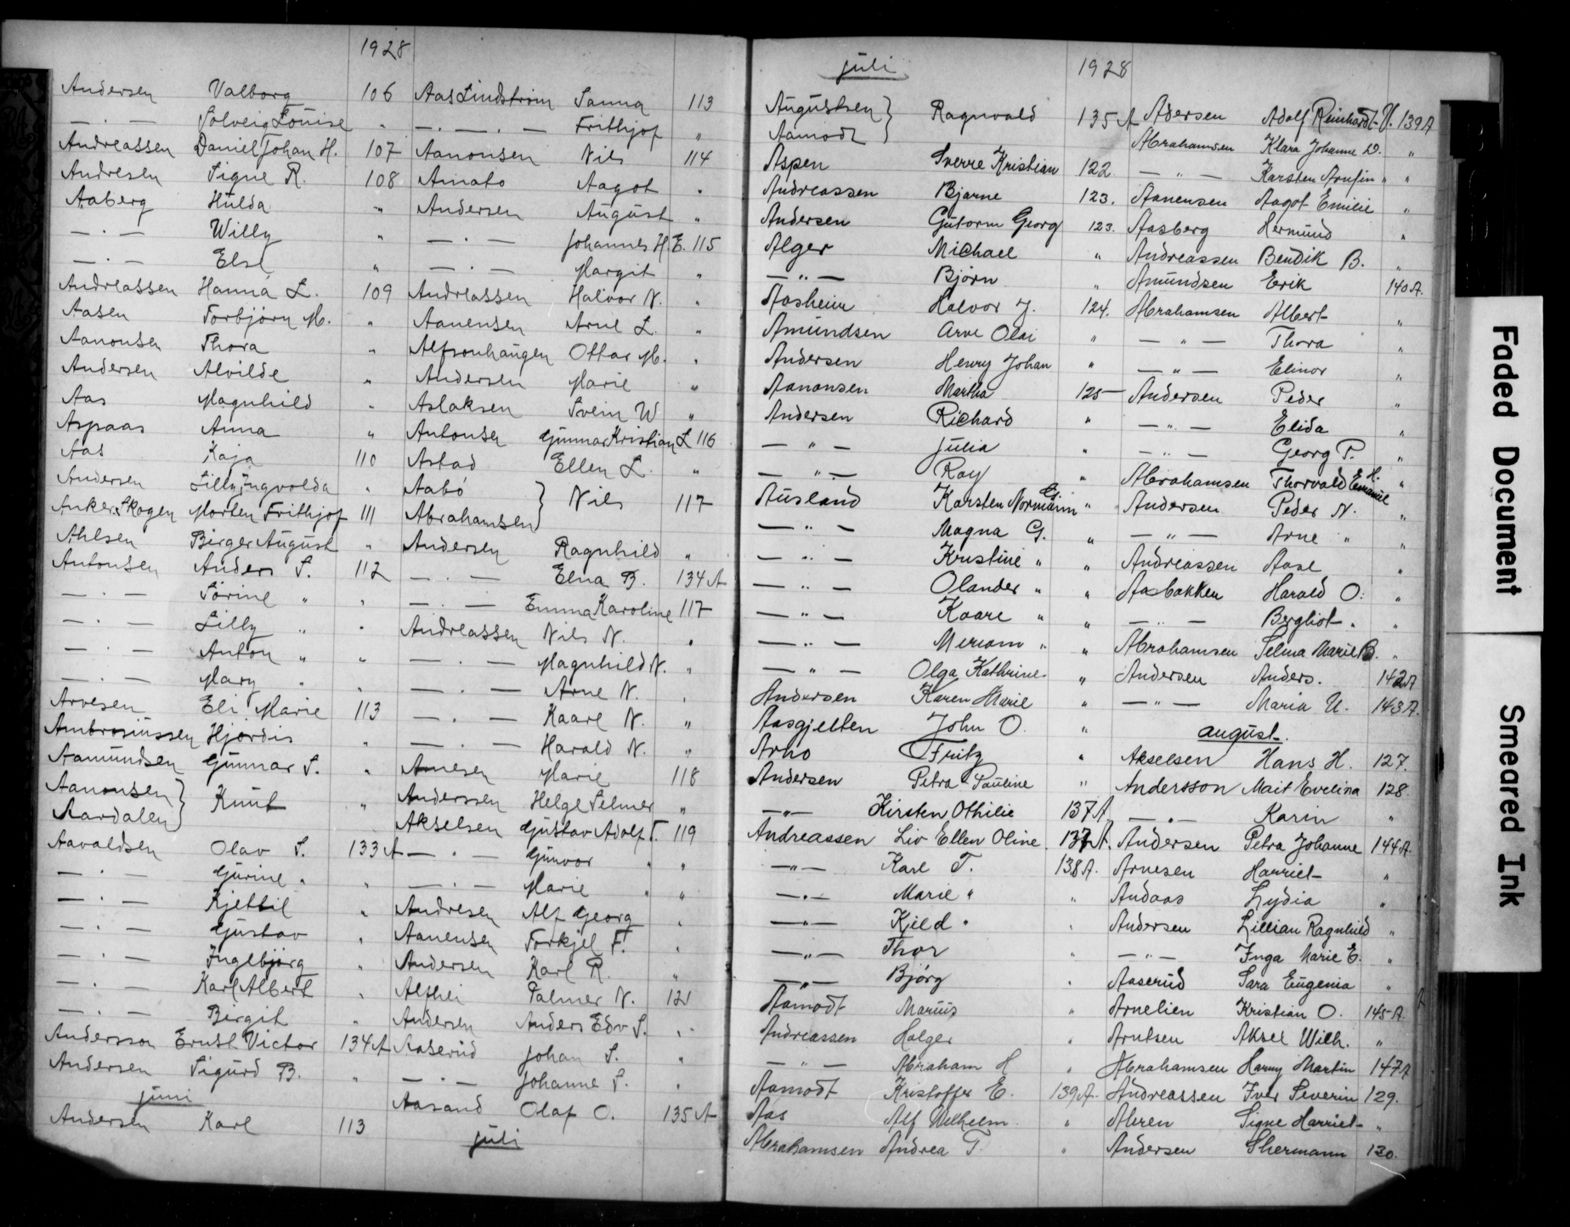 1928
Andersen Valborg 106
— . — Solveig Louise "
Andreassen Daniel Johan H. 107
Andresen Signe R. 108
Aaberg Hulda "
— . — Willy "
— . — Else "
Andreassen Hanna L. 109
Aasen Torbjörn M. "
Aanonsen Thora "
Andersen Alvilde "
Aas Magnhild "
Aspaas Anna "
Aas Kaja 110
Andersen Lilly Ingvolda "
Anker Skogen Morten Frithjof 111
Ahlsen Birger August "
Antonsen Anders S. 112
— . — Sörine " "
— . — Lilly " "
— . — Anton " "
— . — Mary " "
Arvesen Eli Marie 113
Ambrosiussen Hjördis "
Aamundsen Gunnar S. "
Aanonsen }
Aardalen } Knut "
Aavaldsen Olav S. 133A
— . — Gurine " "
— . — Kjettil "
— . — Gustav "
— . — Ingebjörg "
— . — Karl Albert "
— . — Birgit "
Andersson Ernst Victor 134A
Andersen Sigurd B. "
juni
Andersen Karl 113
Aas Lindström Sanna 113
— . — . — Frithjof "
Aanonsen Nils 114
Amato Aagot "
Andersen August "
— . — Johannes H.E. 115
— . — Margit "
Andreassen Halvor N. "
Aanensen Arne L. "
Alfsonhaugen Ottar M. "
Andersen Marie "
Aslaksen Svein W "
Antonsen Gunnar Kristian L 116
Astad Ellen L. "
Aabö }
Abrahamsen } Nils 117
Andersen Ragnhild "
— . — Elna B. 134A
— . — Emma Karoline 117
Andreassen Nils N. "
— . — Magnhild N. "
— . — Arne N. "
— . — Kaare N. "
— . — Harald N. "
Arnesen Marie 118
Anderssen Helge Selmer "
Akselsen Gustav Adolf T. 119
— . — Gunvor " "
— . — Marie " "
Andresen Alf Georg "
Aanensen Torkjel F. "
Andersen Karl R. "
Althei Palmer N. 121
Andersen Anders Edv S. "
Aaserud Johan S. "
— . — Johanne S. "
Aasand Olaf O. 135A
juli
juli 1928
Augustsen }
Aamodt } Ragnvald 135A
Aspen Sverre Kristian 122
Andreassen Bjarne 123.
Andersen Gutorm Georg 123.
Alger Michael "
— " — Björn "
Aasheim Halvor J. 124.
Amundsen Arve Olai "
Andersen Henry Johan "
Aanonsen Martha 125
Andersen Richard "
— " — Julia "
— " — Roy "
Ausland Karsten Normann G. "
— " — Magna G. "
— " — Kristine " "
— " — Olander " "
— " — Kaare " "
— " — Meriam " "
— " — Olga Kathrine "
Andersen Karen Marie "
Aasgjelten John O. "
Arho Fritz "
Andersen Petra Pauline "
— " — Kirsten Othilie 137A
Andreassen Liv Ellen Oline 137A.
— " — Karl T. 138A.
— " — Marie " "
— " — Kjeld " "
— " — Thor "
— " — Björg "
Aamodt Marius "
Andreassen Holger "
— " — Abraham H "
Aamodt Kristoffer E. 139A.
Aas Alf Wilhelm "
Abrahamsen Andrea T. "
Adersen Adolf Reinhardt 139A
Abrahamsen Klara Johanne D. "
— " — Karsten Arnfin " "
Aanensen Aagot Emilie "
Aasberg Hermund "
Andreassen Bendik B. "
Amundsen Erik 140A.
Abrahamsen Albert "
— " — Thora "
— " — Elinor "
Andersen Peder "
— " — Elida "
— " — Georg P. "
Abrahamsen Thorvald Emanuel H. "
Andersen Peder N. "
— " — Arne " "
Andreassen Aase "
Aasbakken Harald O. "
— " — Bergliot " "
Abrahamsen Selma Marie B. "
Andersen Anders. 142A
— " — Maria U. 143A.
august.
Akselsen Hans H. 127.
Andersson Mait Evelina 128.
— . — Karin "
Andersen Petra Johanne 144A.
Arnesen Harriet "
Andaas Lydia "
Andersen Lillian Ragnhild "
— " — Inga Marie E. "
Aaserud Sara Eugenia "
Arnelien Kristian O. 145A.
Arntsen Aksel Wilh. "
Abrahamsen Harry Martin 147A
Andreassen Iver Severin 129.
Ahren Signe Harriet "
Andersen Shermann 130.
Faded Document
Smeared Ink